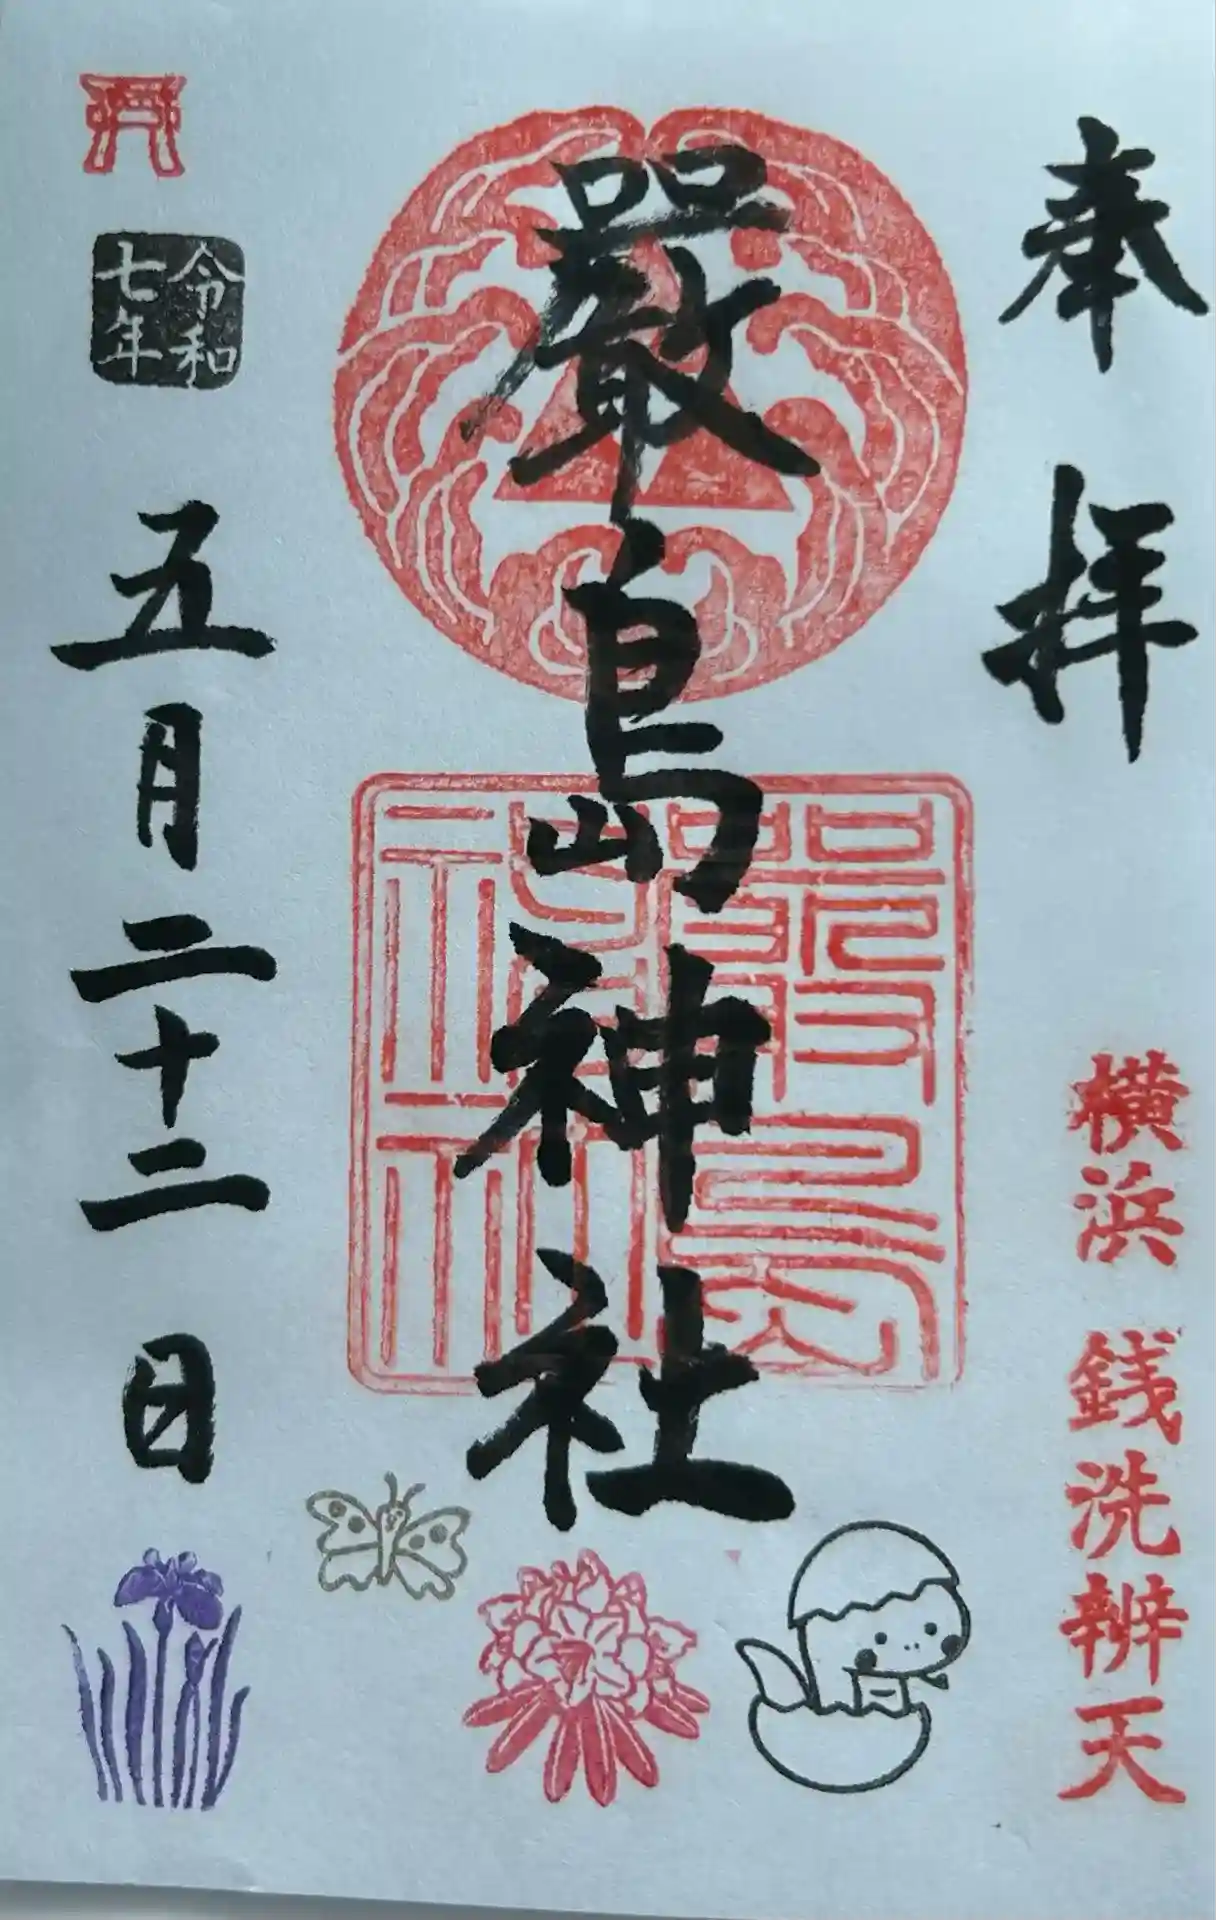 奉拝
横浜 銭洗辨天
嚴島神社
嚴島
神社
令和
七年
五月二十二日